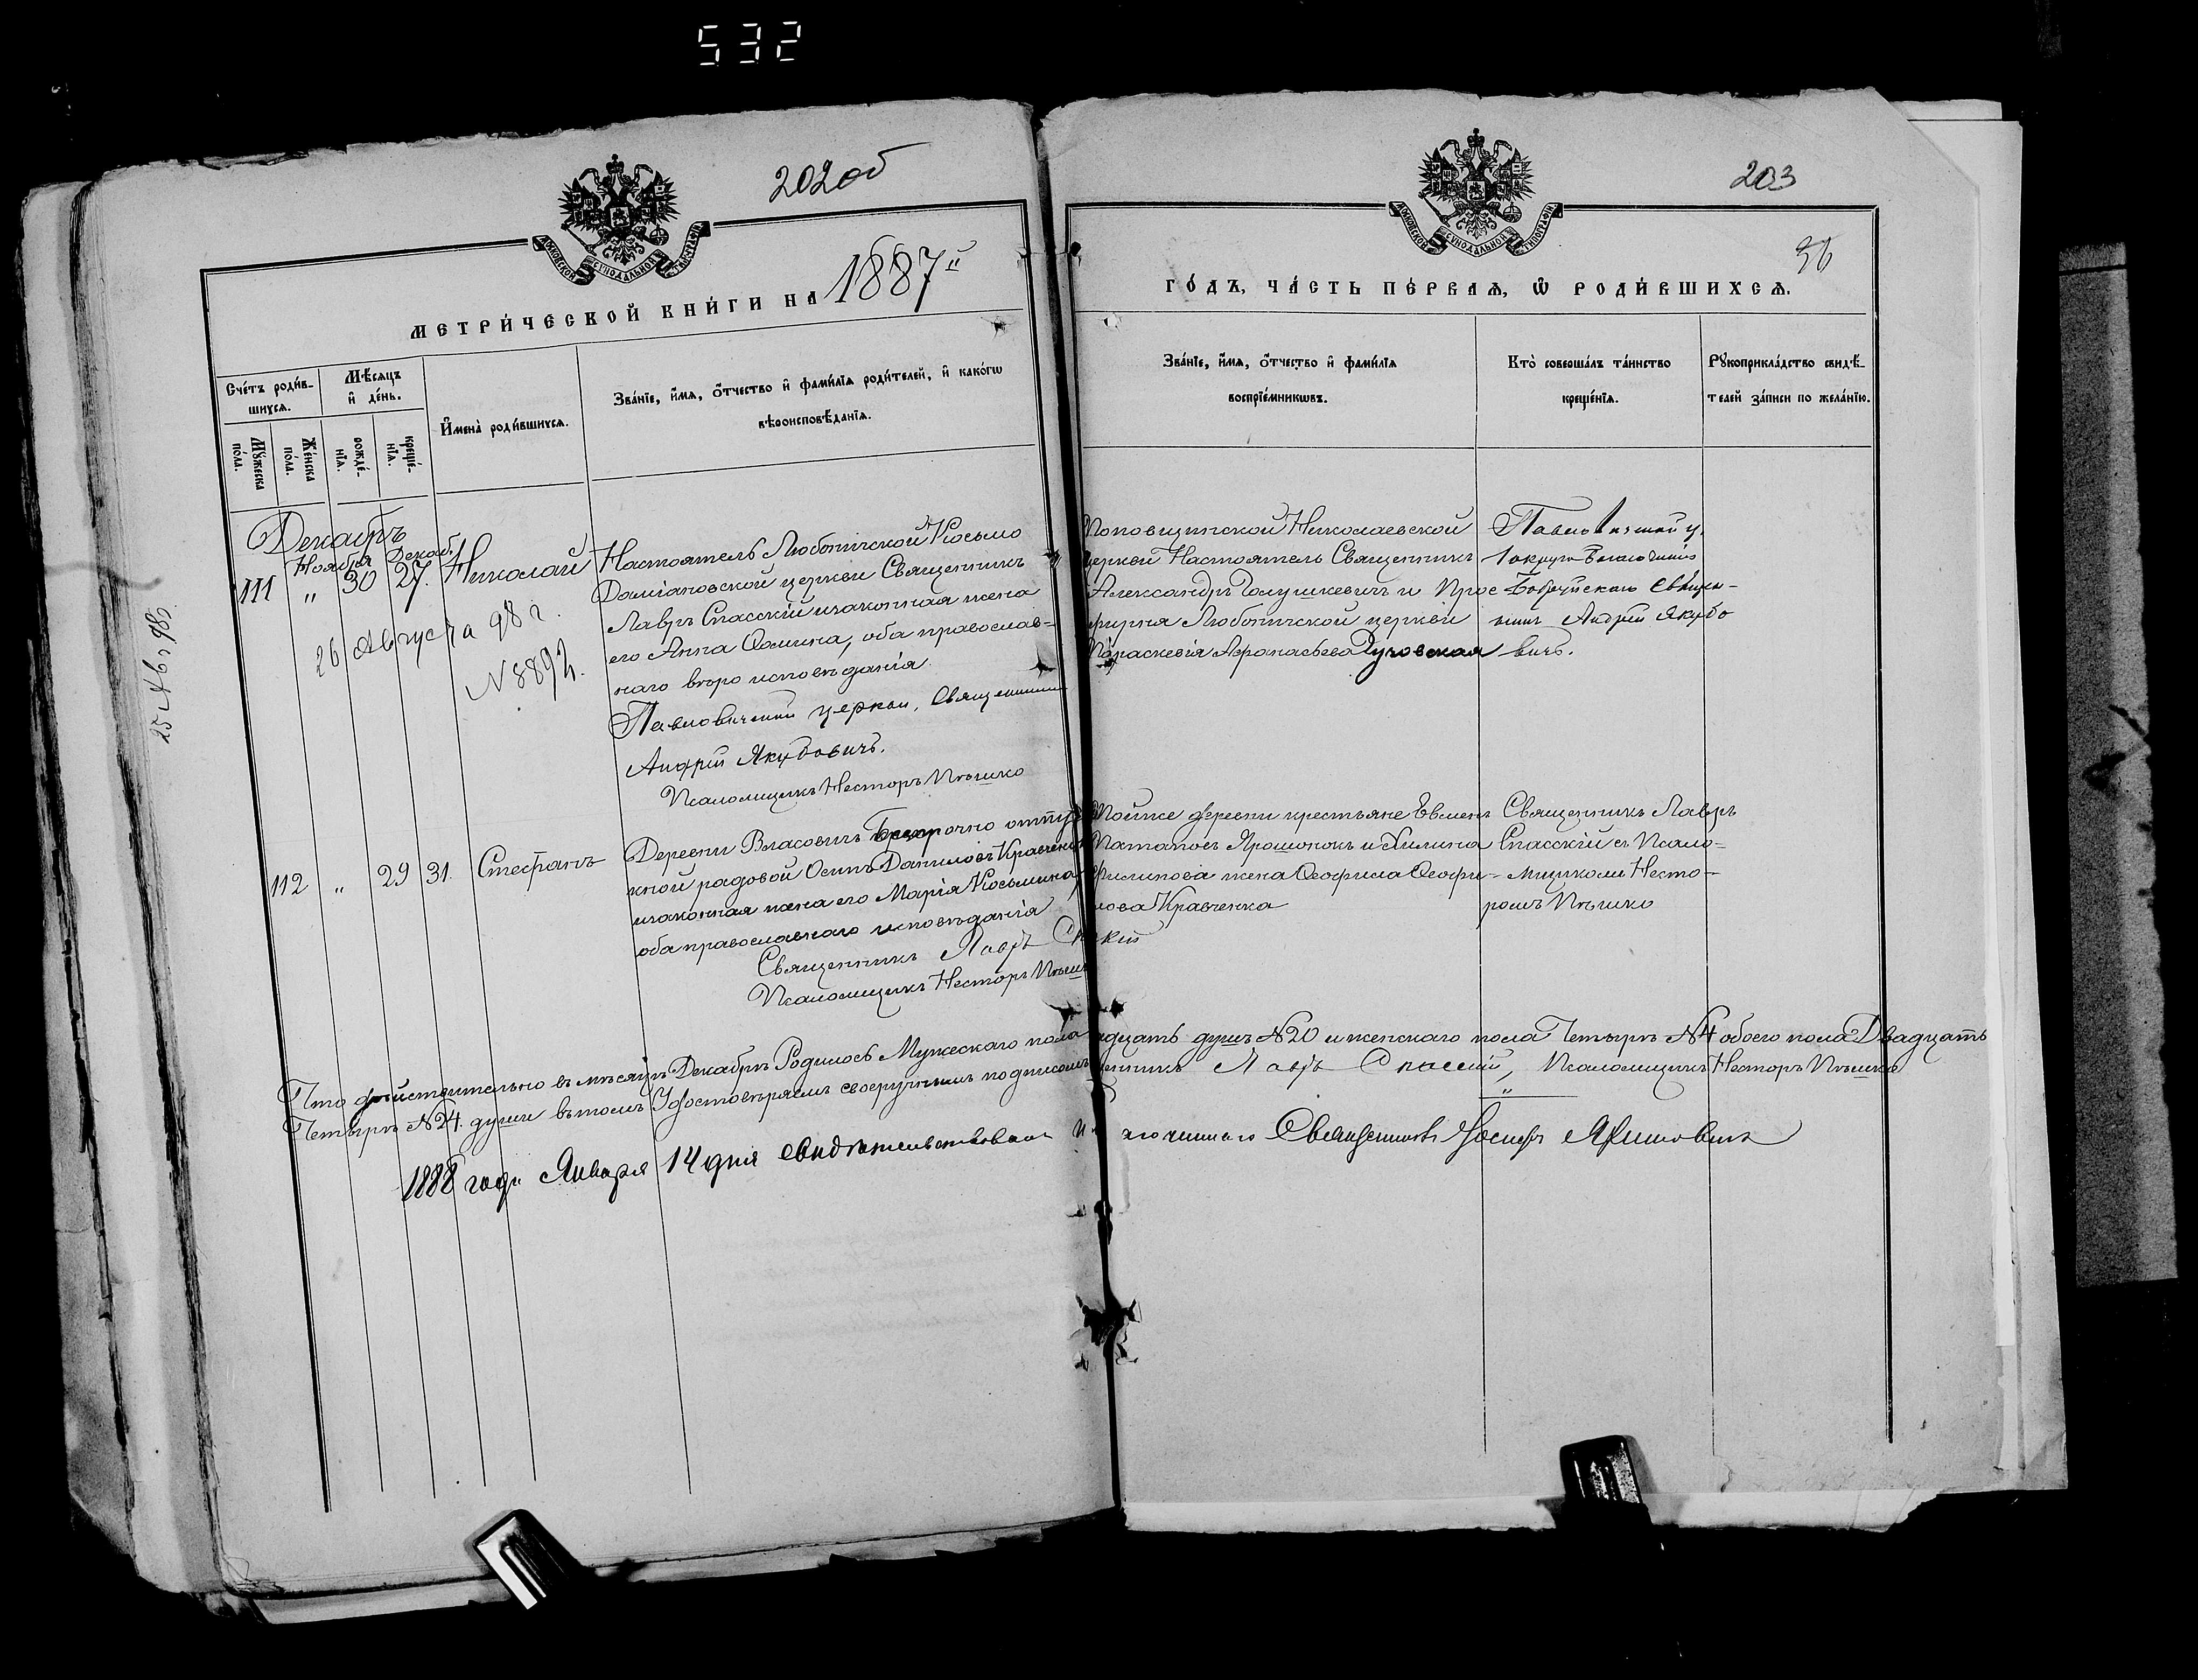 532
202об
МОСКОВСКОЙ СѴНОДАЛЬНОЙ ТИПОГРАФІИ
МЕТРИ́ЧЕСКОЙ КНИ́ГИ НА 1887й
Сче́тъ роди́вшихсѧ.
Мѣ́сѧцъ и҆ де́нь.
Мꙋ́жеска по́ла.
Же́нска по́ла.
рожде́нїѧ.
креще́нїѧ.
И҆мена̀ роди́вшихсѧ.
Зва́нїе, и҆́мѧ, ѻ҆́тчество и҆ фами́лїѧ роди́телей, и҆ како́гѡ
вѣроисповѣ́данїѧ.
Декабрь
Ноября Декаб.
111 " 30 27. Николай
26 Августа 98 г.
N 8892.
25 Ав. 98 г.
Настоятель Любоничской Косьмо
Даміановской церкви Священникъ
Лавръ Спасскій и законная жена
его Анна Фомина, оба православ-
наго вѣроисповѣданія.
Павловичской церкви, Священникъ
Андрей Якубовичъ.
Псаломщикъ Несторъ Пѣшко
112 " 29 31. Стефанъ
Деревни Власовичъ Безсрочно отпу
кной рядовой Осипъ Даниловъ Кравченко
и законная жена его Марія Косьмина,
оба православнаго исповѣданія
Священникъ Лавръ Спаскій
Псаломщикъ Несторъ Пѣшко
203
36
МОСКОВСКОЙ СѴНОДАЛЬНОЙ ТИПОГРАФІИ
ГО́ДЪ, ЧА́СТЬ ПЕ́РВАѦ, Ѽ РОДИ́ВШИХСѦ.
Зва́нїе, и҆́мѧ, ѻ҆́тчество и҆ фами́лїѧ
воспрїе́мникѡвъ.
Кто̀ соверша́лъ та́инство
креще́нїѧ.
Рꙋкоприкла́дство свидѣ́-
телей за́писи по жела́нїю.
Поповщинской Николаевской
церкви Настоятель Священникъ
Александръ Голушкевичъ и Прос
фирня Любоничской церкви
Параскевія Афонасьева Ручовская
1 округа Благочинія
Бобруйскаго Священ-
никъ Андрей Якубо
вичъ.
Тойже деревни крестьяне Евмен
Потаповъ Ярошонокъ и Акилина
Филипова жена Феофила Феофи-
лова Кравченка
Священникъ Лавръ
Спасскій съ Псало-
мщикомъ Несто-
ромъ Пѣшко
Что дѣйствительно въ мѣсяцѣ Декабрѣ Родилось Мужескаго пола двадцать душъ N20 и женскаго пола Четыре N4 обоего пола Двадцать
Четыре N24. души въ томъ Удостовѣряемъ своеручнымъ подписомъ Священникъ Лавръ Спасскій, Псаломщикъ Несторъ Пѣшко
1888 года Января 14 дня свидѣтельствовалъ Священникъ Іосифъ